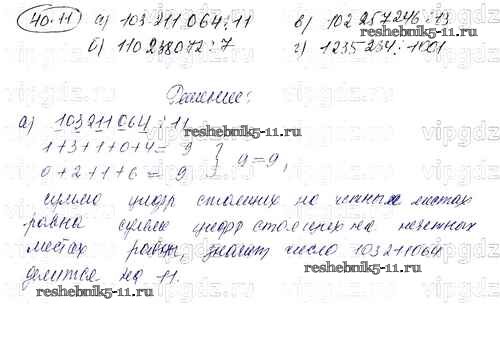 40.11 а) 103 211 064 : 11 в) 102 257 246 : 13
б) 110 238 072 : 7 г) 1235 234 : 1001
Решение:
а) 103211064 : 11
reshebnik5-11.ru
1+3+1+0+4= 9
0+2+1+6 = 9 } 9=9,
сумма цифр стоящих на четных местах
равна сумме цифр стоящих на нечетных
местах равны, значит число 103211064
делится на 11.
reshebnik5-11.ru
reshebnik5-11.ru
reshebnik5-11.ru